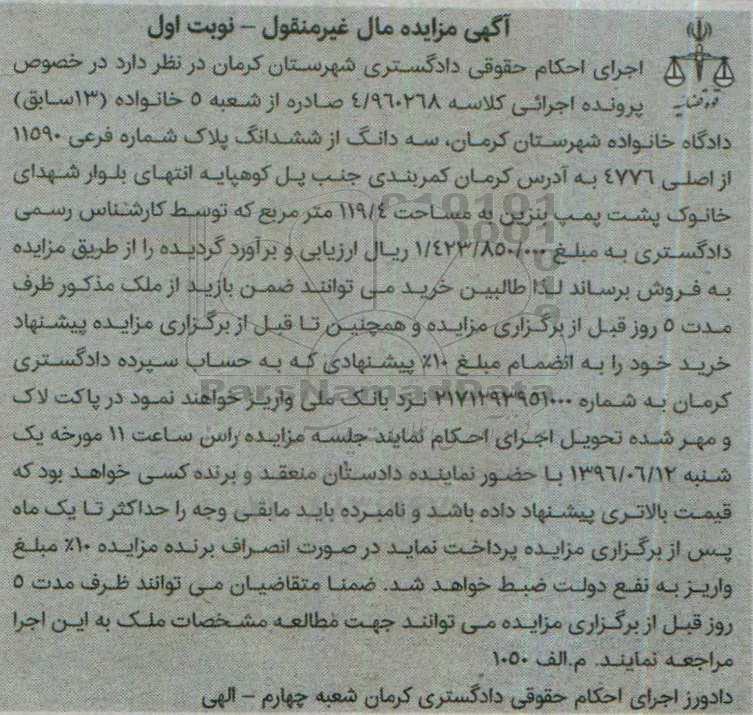 آگهی مزایده مال غیرمنقول – نوبت اول
اجرای احکام حقوقی دادگستری شهرستان کرمان در نظر دارد در خصوص
پرونده اجرائی کلاسه ٤/٩٦٠٢٦٨ صادره از شعبه ٥ خانواده (١٣سابق)
دادگاه خانواده شهرستان کرمان، سه دانگ از ششدانگ پلاک شماره فرعی ١١٥٩٠
از اصلی ٤٧٧٦ به آدرس کرمان کمربندی جنب پل کوهپایه انتهای بلوار شهدای
خانوک پشت پمپ بنزین به مساحت ١١٩/٤ متر مربع که توسط کارشناس رسمی
دادگستری به مبلغ ١/٤٢٣/٨٥٠/٠٠٠ ریال ارزیابی و برآورد گردیده را از طریق مزایده
به فروش برساند لذا طالبین خرید می توانند ضمن بازید از ملک مذکور ظرف
مدت ٥ روز قبل از برگزاری مزایده و همچنین تا قبل از برگزاری مزایده پیشنهاد
خرید خود را به انضمام مبلغ ١٠٪ پیشنهادی که به حساب سپرده دادگستری
کرمان به شماره ٢١٧١٢٩٣٩٥١٠٠٠ نزد بانک ملی واریز خواهند نمود در پاکت لاک
و مهر شده تحویل اجرای احکام نمایند جلسه مزایده راس ساعت ١١ مورخه یک
شنبه ١٣٩٦/٠٦/١٢ با حضور نماینده دادستان منعقد و برنده کسی خواهد بود که
قیمت بالاتری پیشنهاد داده باشد و نامبرده باید مابقی وجه را حداکثر تا یک ماه
پس از برگزاری مزایده پرداخت نماید در صورت انصراف برنده مزایده ١٠٪ مبلغ
واریز به نفع دولت ضبط خواهد شد. ضمنا متقاضیان می توانند ظرف مدت ٥
روز قبل از برگزاری مزایده می توانند جهت مطالعه مشخصات ملک به این اجرا
مراجعه نمایند. م.الف ١٠٥٠
دادورز اجرای احکام حقوقی دادگستری کرمان شعبه چهارم – الهی
قوه قضاییه
ParsNamadData